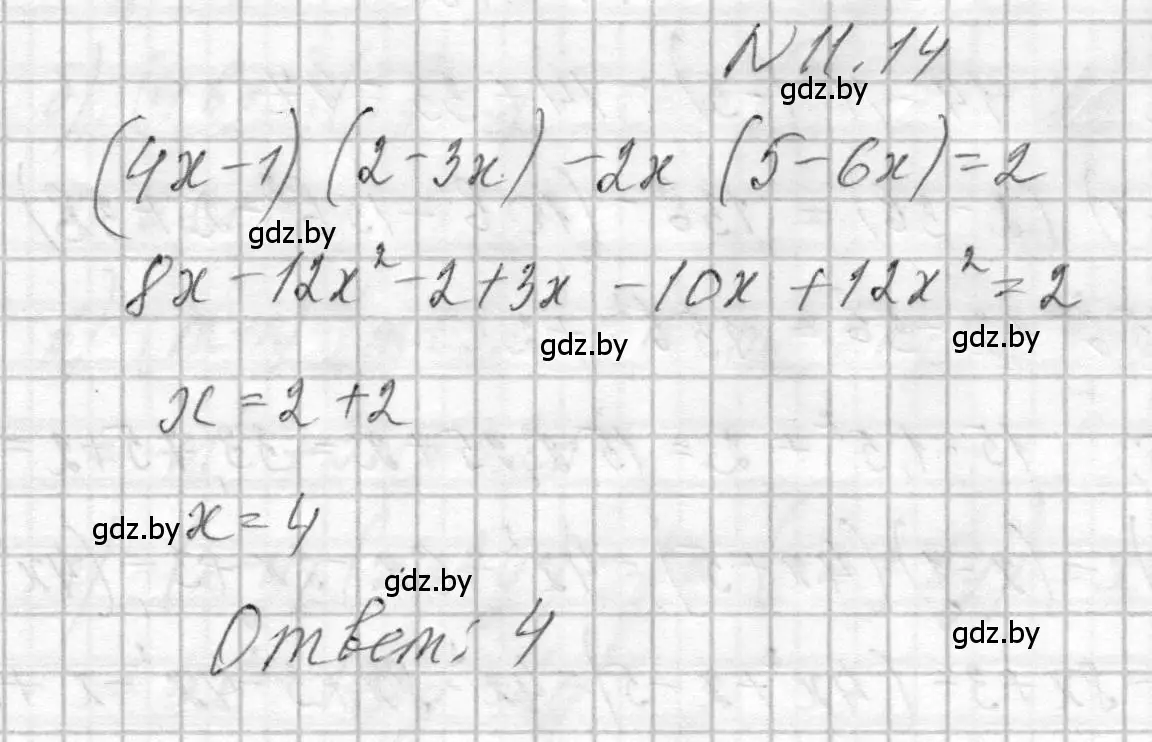 N 11.14
gdz.by
(4x-1) (2-3x) -2x (5-6x)=2
gdz.by
8x-12x²-2+3x -10x +12x²=2
gdz.by
gdz.by
x=2+2
gdz.by x=4
gdz.by
Ответ: 4
gdz.by